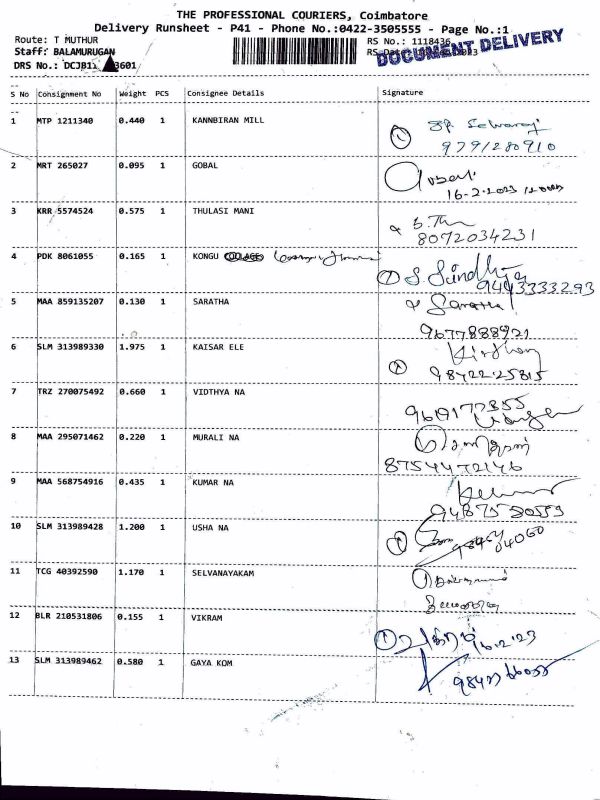 THE PROFESSIONAL COURIERS, Coimbatore
Delivery Runsheet - P41 - Phone No.:0422-3505555 - Page No.:1
Route: T MUTHUR
RS No.: 1118436
Staff: BALAMURUGAN
DOCUMENT DELIVERY
DRS No.:
S No Consignment No Weight PCS Consignee Details Signature
1 MTP 1211340 0.440 1 KANNBIRAN MILL
9791280910
2 MRT 265027 0.095 1 GOBAL
16-2-2023
3 KRR 5574524 0.575 1 THULASI MANI
8072034231
4 PDK 8061055 0.165 1 KONGU
9443333293
5 MAA 859135207 0.130 1 SARATHA Saratha
9677888921
6 SLM 313989330 1.975 1 KAISAR ELE
9842225815
7 TRZ 270075492 0.660 1 VIDTHYA NA
8 MAA 295071462 0.220 1 MURALI NA
8754472146
9 MAA 568754916 0.435 1 KUMAR NA Kumar
10 SLM 313989428 1.200 1 USHA NA
11 TCG 40392590 1.170 1 SELVANAYAKAM
12 BLR 210531806 0.155 1 VIKRAM
13 SLM 313989462 0.580 1 GAYA KOM